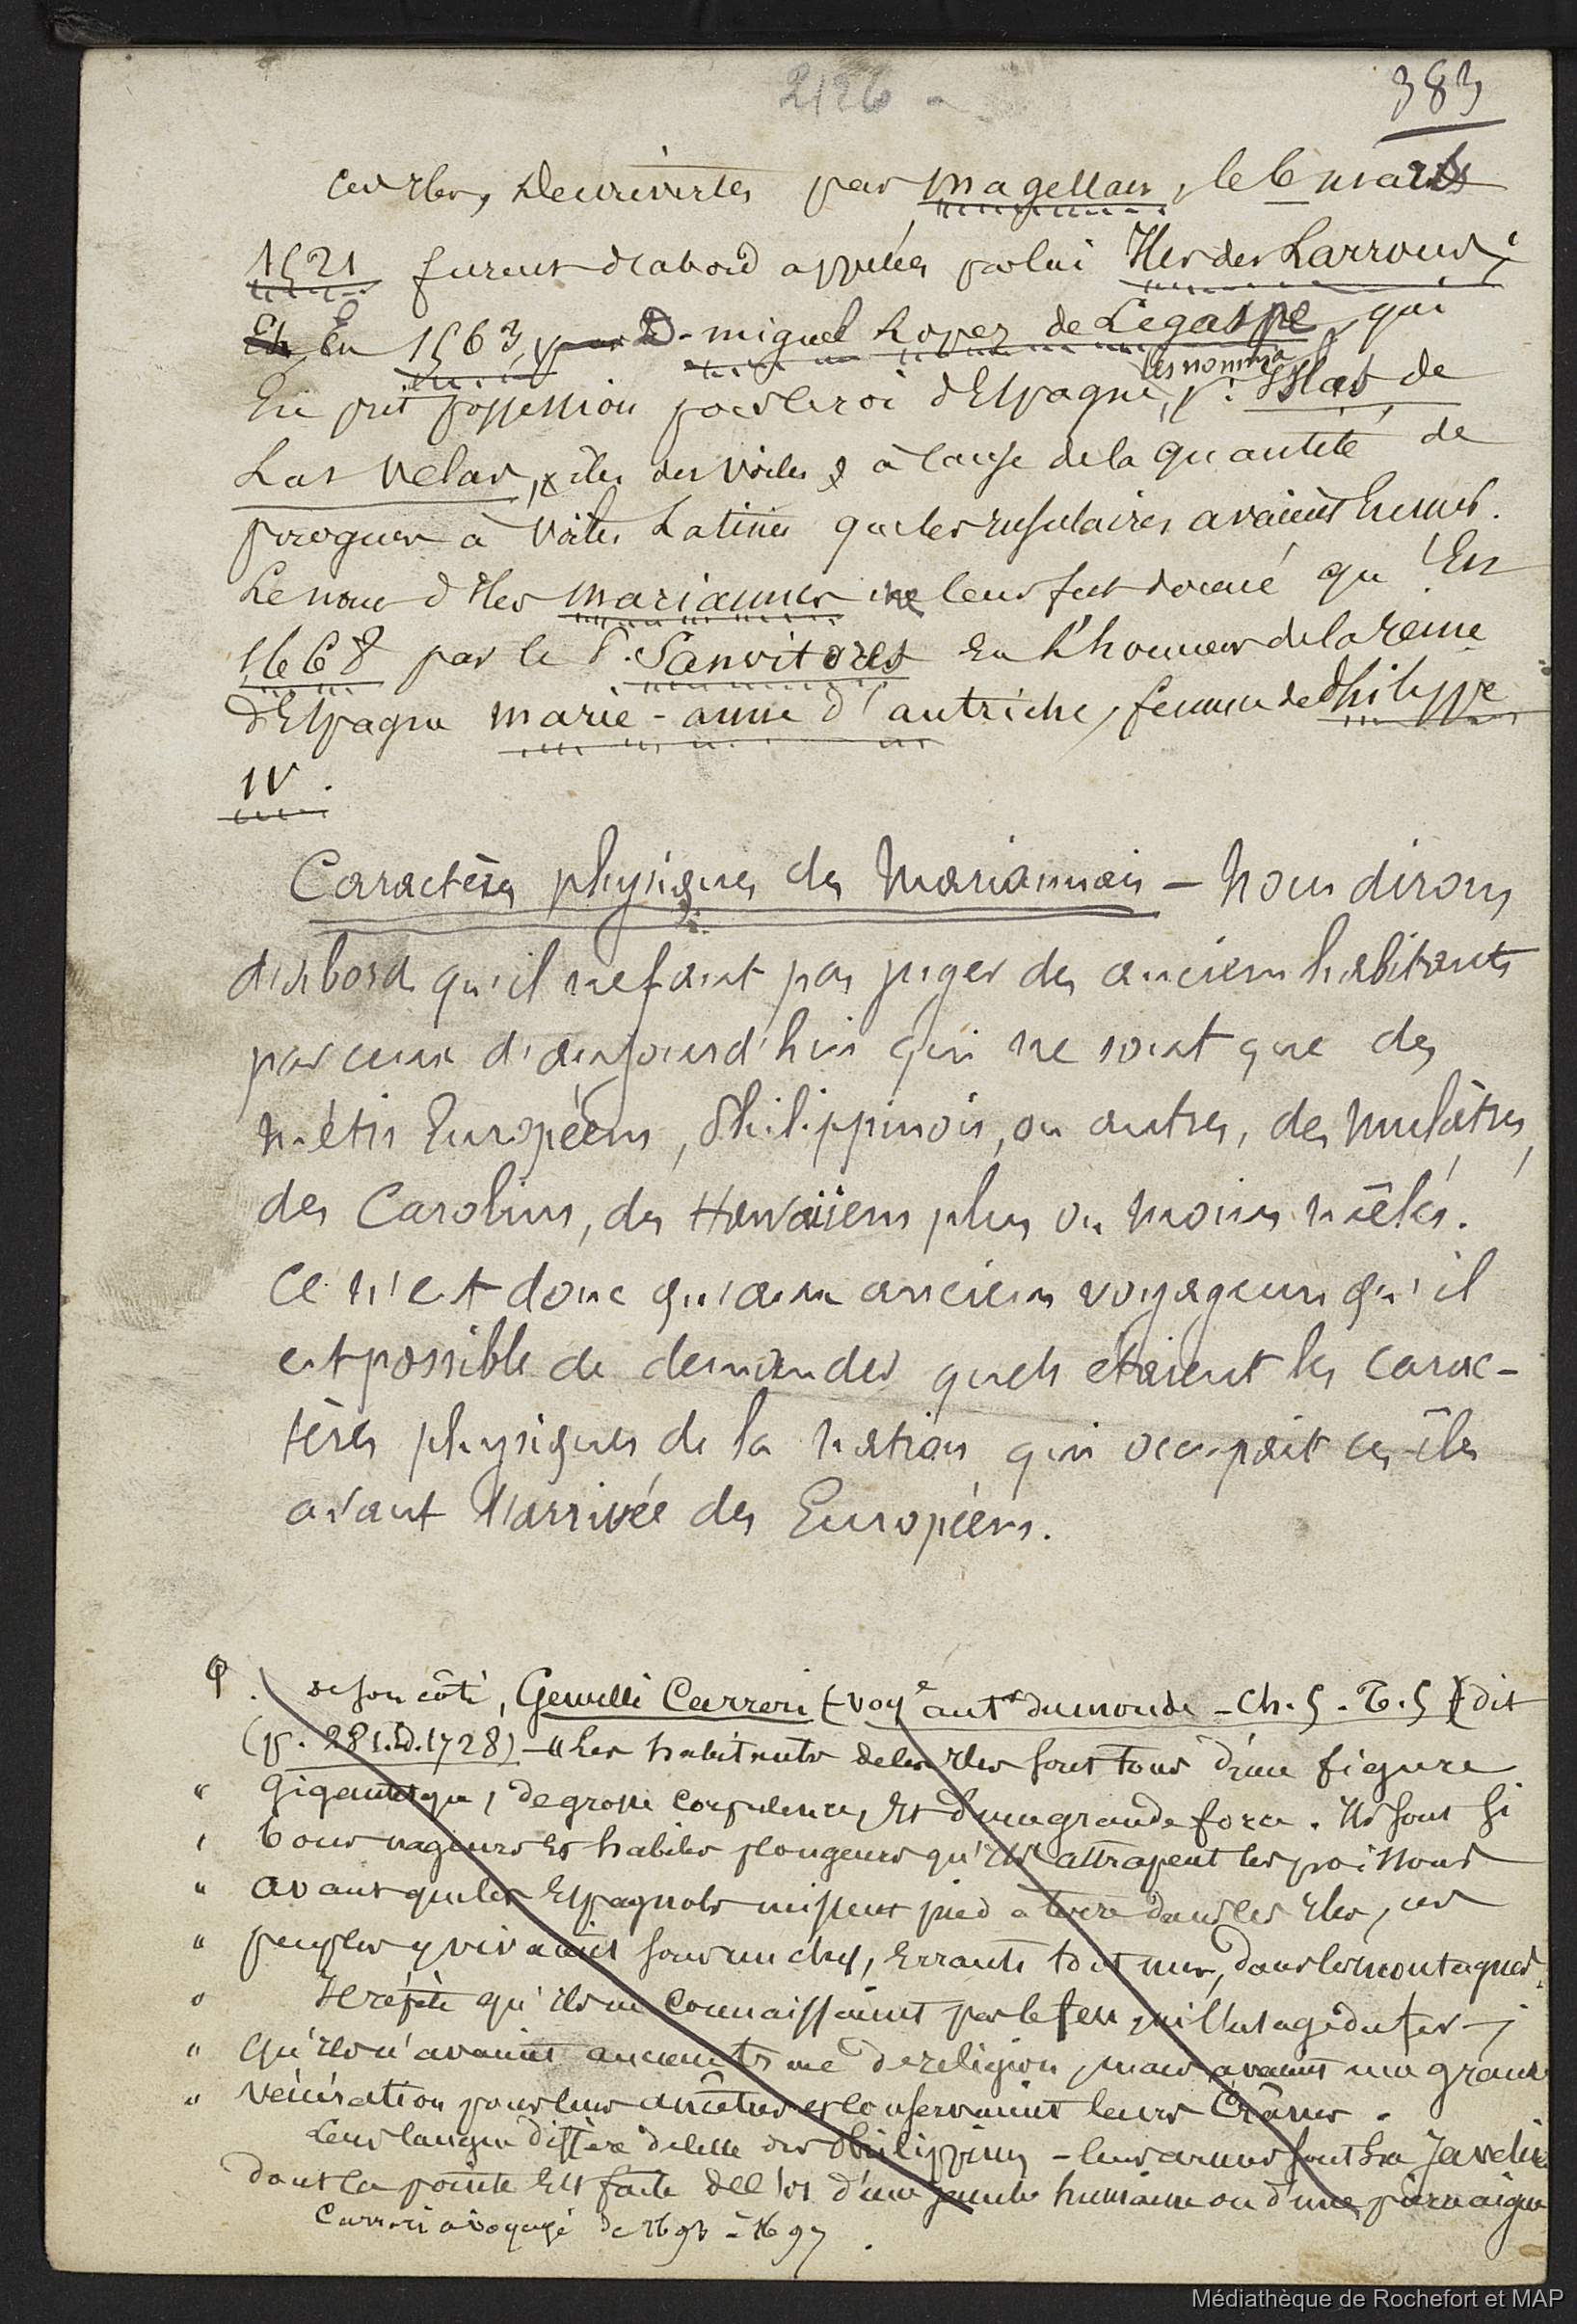 2126
383
Ces Iles, Découvertes par Magellan, le 6 mars
1521 furent d'abord appelées par lui Iles des Larrons;
En 1563, D. Miguel Lopez de Legaspe, qui
En prit possession pour le roi d'Espagne, les nomma Islas de
Las Velas, îles des voiles à cause de la quantité de
pirogues à voiles Latines que les insulaires avaient
Le nom d'Iles Mariannes ne leur fut donné qu'En
1668 par le P. Sanvitores En L'honneur de la Reine
d'Espagne Marie-Anne d'Autriche, femme de Philippe
IV.
Caractères physiques des Mariannais — Nous dirons
d'abord qu'il ne faut pas juger des anciens habitants
par ceux d'aujourd'hui qui ne sont que des
métis Européens, Philippinois, ou autres, des mulâtres,
des Carolins, des Hawaïiens plus ou moins mêlés.
Ce n'est donc qu'aux anciens voyageurs qu'il
est possible de demander quels étaient les carac-
tères physiques de la nation qui occupait ces îles
avant l'arrivée des Européens.
De son côté, Gemelli Carreri (voy.e aut.r du monde - Ch. 5 - T. 5) dit
(p. 281. Ed. 1728) — "Les habitants de les Iles sont tous d'une figure
" Gigantesque, de grosse corpulence, Et d'une grande force. Ils sont si
" bons nageurs Et habiles plongeurs qu'ils attrapent les poissons
" avant que les Espagnols missent pied à terre dans les Iles, ces
" peuples y vivaient sous un chef, Errants tout nus, dans les montagnes.
" Il répète qu'ils ne connaissaient pas le feu, ni l'usage du fer;
" qu'ils n'avaient de religion, mais avaient une grande
" vénération pour leurs ancêtres et conservaient leurs Crânes.
Leur langue diffère de celle des Philippines - leurs armes sont La Javeline
dont la pointe Est faite de l'os d'une jambe humaine ou d'une
Carreri a voyagé de 1693 à 1697.
Médiathèque de Rochefort et MAP